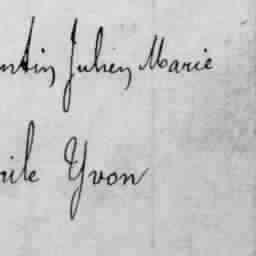 ntin Julien Marie
ile Yvon